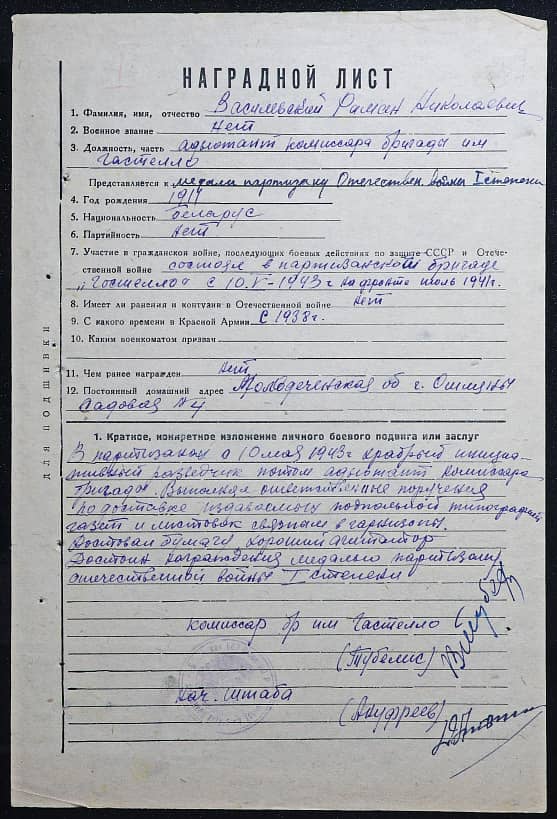 НАГРАДНОЙ ЛИСТ
1. Фамилия, имя, отчество Василевский Роман Николаевич
2. Военное звание Нет
3. Должность, часть адютант комиссара бригады им
Гастелло
Представляется к медали партизану Отечествен войны I степени
4. Год рождения
5. Национальность беларус
6. Партийность Нет
7. Участие в гражданской войне, последующих боевых действиях по защите СССР и Отече-
ственной войне состоял в партизанской бригаде
„Гостелло" с 10.V-1943 г на фронте июль 1941г.
8. Имеет ли ранения и контузии в Отечественной войне Нет
9. С какого времени в Красной Армии С 1938 г.
10. Каким военкоматом призван
11. Чем ранее награжден Нет
12. Постоянный домашний адрес Молодеченская об г. Ошмяны
Садовая №4
ДЛЯ ПОДШИВКИ
1. Краткое, конкретное изложение личного боевого подвига или заслуг
В партизанах с 10 мая 1943г храбрый инициа-
тивный разведчик потом адютант комиссара
бригады. Выполнял ответственные поручения
по доставке издаваемых подпольной типографией
газет и листовок связным в гарнизоны.
Доставал бумагу, хороший агитатор
Достоин награждения медалью партизану
отечественной войны I степени
комиссар бр им Гастелло
(Тубелис)
нач. штаба
(Ануфреев)